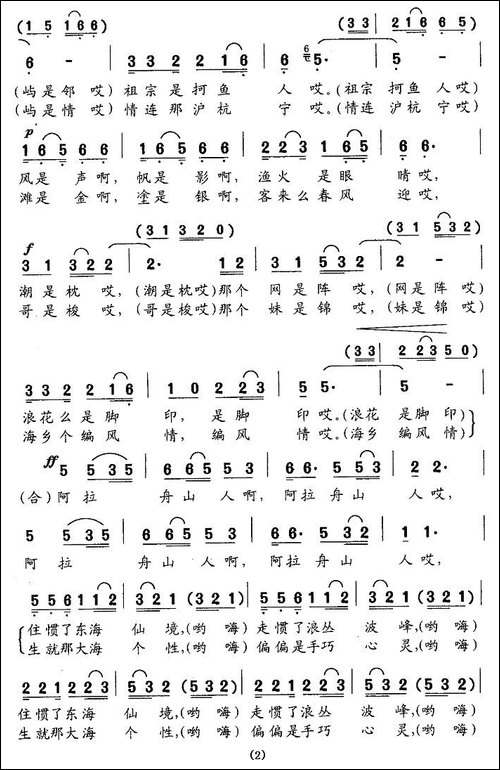 (1 5 1 6 6) (3 3 2 1 6 6 5)
6 - 3 3 2 2 1 6 6 6 5· 5 -
(屿是邻哎)祖宗是抲鱼 人哎。(祖宗抲鱼人哎)
(屿是情哎)情连那沪杭 宁哎。(情连沪杭宁哎)
p
1 6 5 6 6 1 6 5 6 6 2 2 3 1 6 5 6 6·
风是声啊,帆是影啊,渔火是眼睛哎,
滩是金啊,塗是银啊,客来么春风迎哎,
(3 1 3 2 0) (3 1 5 3 2)
f
3 1 3 2 2 2· 1 2 3 1 5 3 2 2 -
潮是枕哎,(潮是枕哎)那个网是阵哎,(网是阵哎)
哥是梭哎,(哥是梭哎)那个妹是锦哎,(妹是锦哎)
(3 3 2 2 3 5 0)
3 3 2 2 2 1 6 1 0 2 2 3 5 5· 5 -
浪花么是脚印,是脚印哎。(浪花是脚印)
海乡个编风情,编风情哎。(海乡编风情)
ff
5 5 3 5 6 6 5 5 3 6 6· 5 5 3 2 2·
(合)阿拉 舟山人啊,阿拉舟山人哎,
5 5 3 5 6 6 5 5 3 6 6· 5 3 2 1 1·
阿拉 舟山人啊,阿拉舟山人哎,
5 5 6 1 1 2 3 2 1 (3 2 1) 5 5 6 1 1 2 3 2 1 (3 2 1)
住惯了东海仙境,(哟嗨)走惯了浪丛波峰,(哟嗨)
生就那大海个性,(哟嗨)偏偏是手巧心灵,(哟嗨)
2 2 1 2 2 3 5 3 2 (5 3 2) 2 2 1 2 2 3 5 3 2 (5 3 2)
住惯了东海仙境,(哟嗨)走惯了浪丛波峰,(哟嗨)
生就那大海个性,(哟嗨)偏偏是手巧心灵,(哟嗨)
(2)